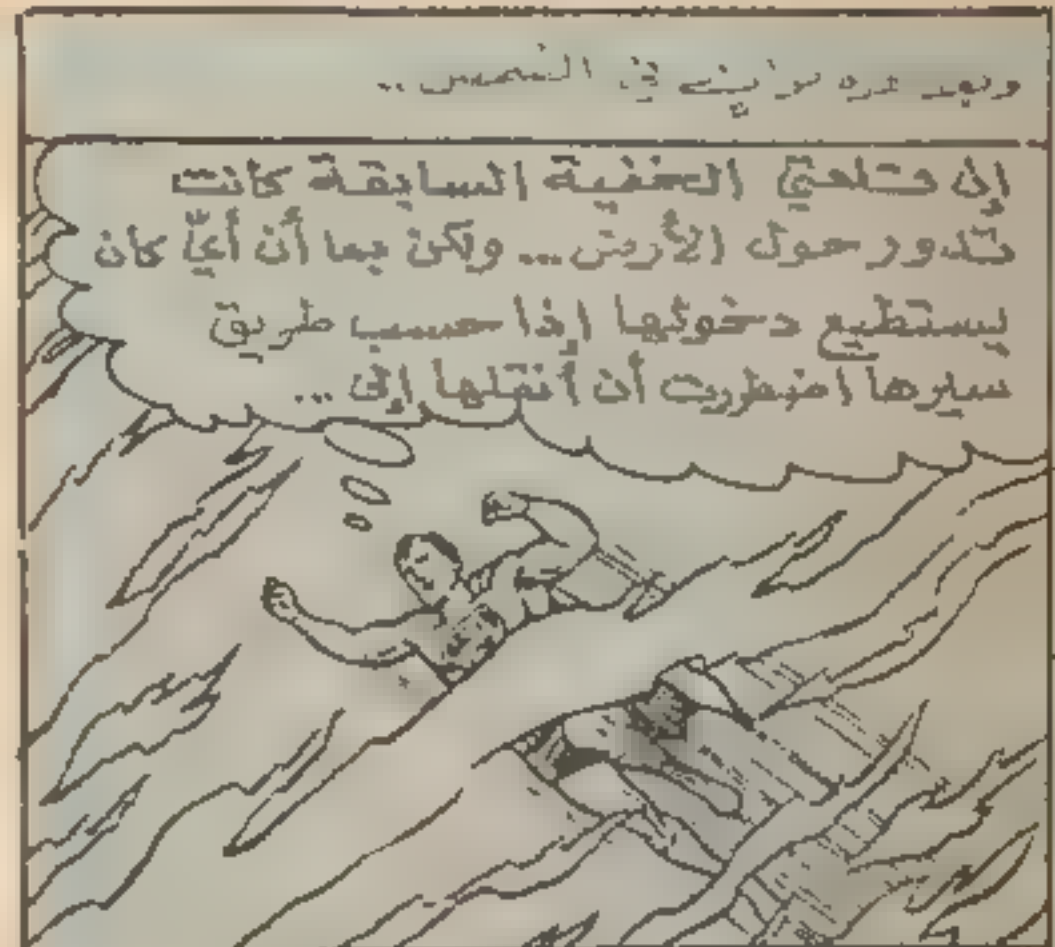 وبعد مرور ثوانٍ في الشمس ..
إن قلعتي الخفية السابقة كانت
تدور حول الأرض ... ولكن بما أن أيّ كان
يستطيع دخولها إذا حسب طريق
سيرها اضطررت أن أنقلها إلى ...